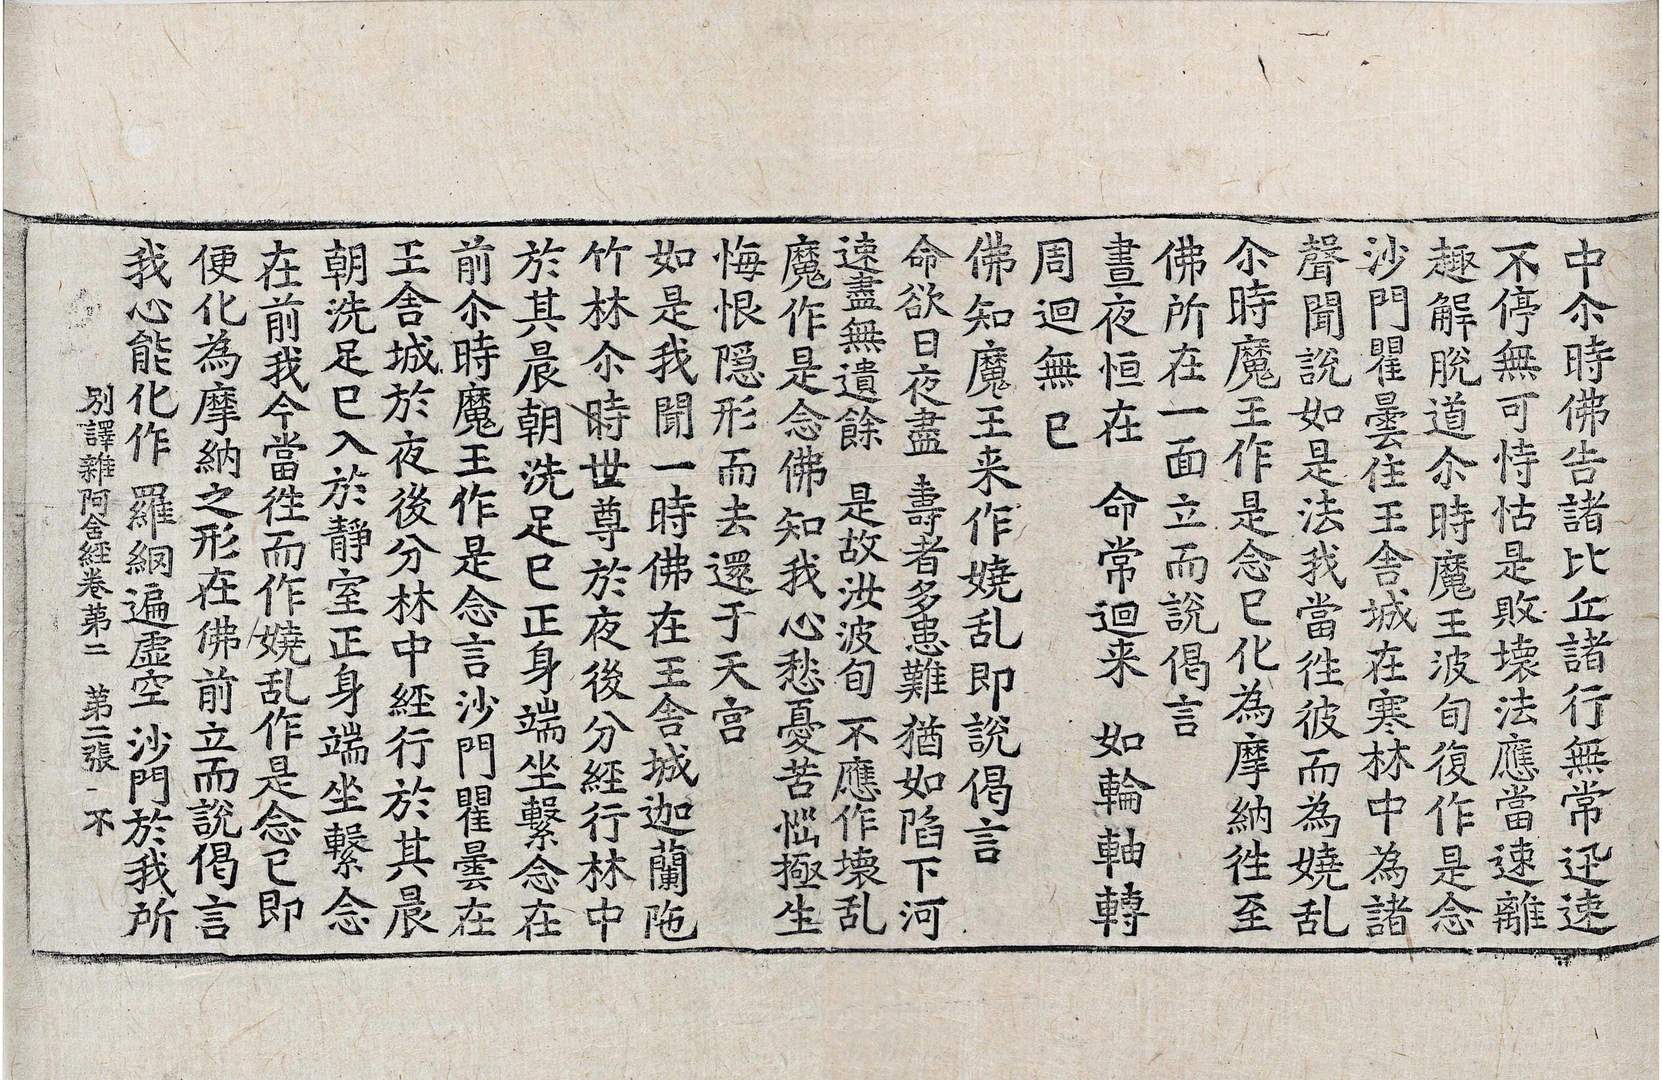 中尒時佛告諸比丘諸行無常迅速
不停無可恃怙是敗壞法應當速離
趣解脫道尒時魔王波旬復作是念
沙門瞿曇住王舍城在寒林中為諸
聲聞說如是法我當徃彼而為嬈乱
尒時魔王作是念已化為摩納徃至
佛所在一面立而說偈言
晝夜恒在 命常迴来 如輪軸轉
周迴無已
佛知魔王来作嬈乱即說偈言
命欲日夜盡 壽者多患難 猶如陷下河
速盡無遺餘 是故汝波旬 不應作壞乱
魔作是念佛知我心愁憂苦惱極生
悔恨隱形而去還于天宮
如是我聞一時佛在王舍城迦蘭陁
竹林尒時世尊於夜後分經行林中
於其晨朝洗足已正身端坐繫念在
前尒時魔王作是念言沙門瞿曇在
王舍城於夜後分林中經行於其晨
朝洗足已入於靜室正身端坐繫念
在前我今當徃而作嬈乱作是念已即
便化為摩納之形在佛前立而說偈言
我心能化作 羅網遍虛空 沙門於我所
別譯雜阿含經卷苐二 苐二張 不